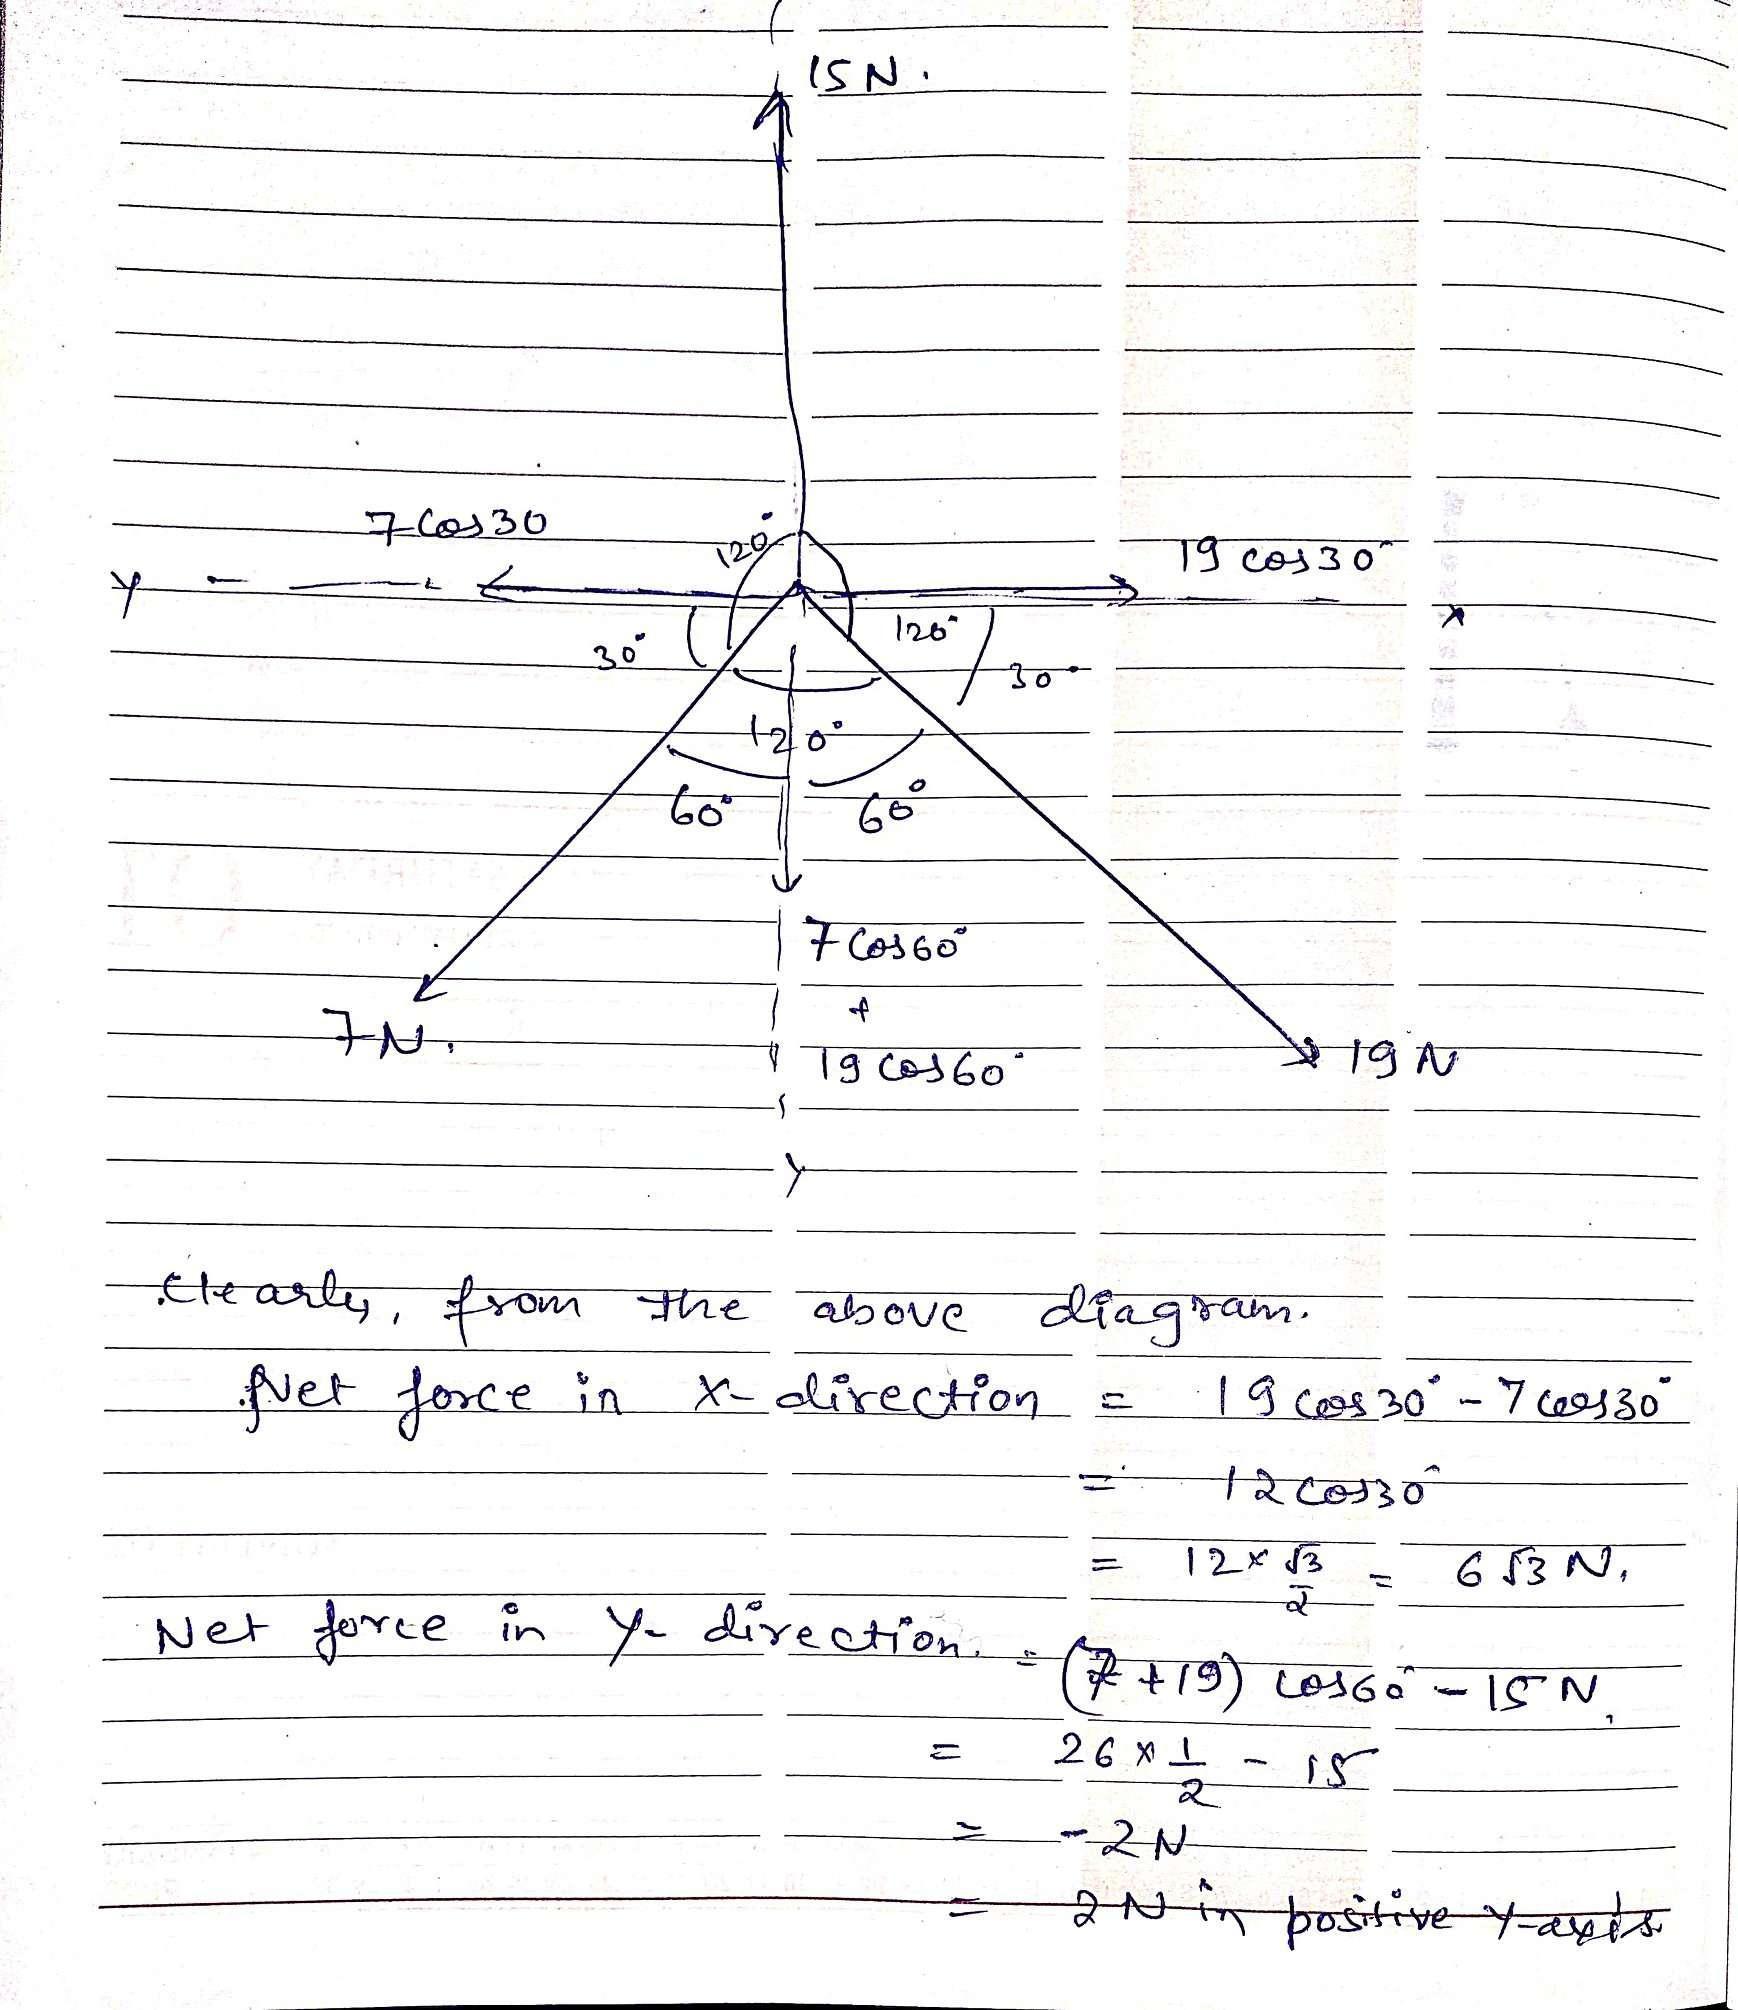 15N.
7 Cos30
120°
19 cos30°
y
x
30°
120°
30°
120°
60°
60°
7 Cos60°
+
19 cos60°
7N.
19 N
y
Clearly, from the above diagram.
Net force in x-direction = 19 cos30° - 7 cos30°
= 12 cos30°
= 12 × √3/2 = 6√3 N.
Net force in y-direction. = (7+19) cos60° - 15 N.
= 26 × 1/2 - 15
= -2N
= 2N in positive y-axis